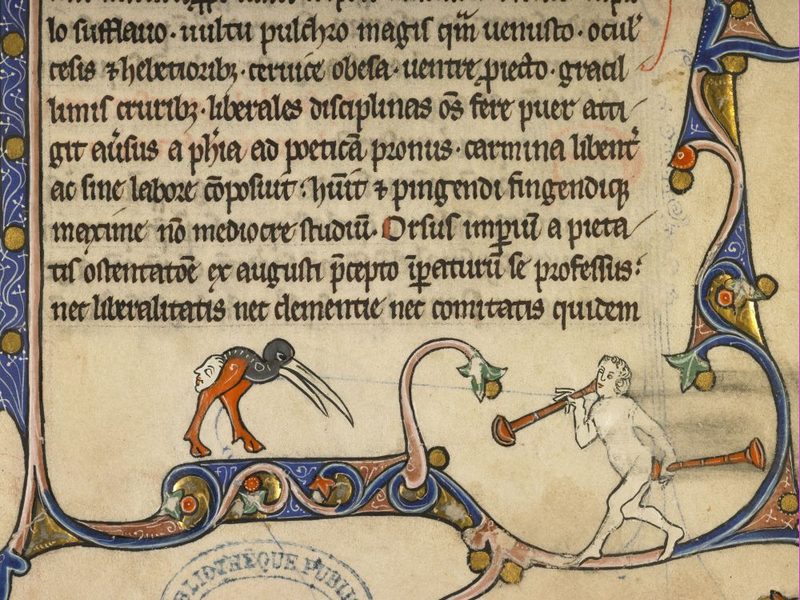 lo sufflauo · uultu pulchro magis qm̄ uenusto · ocul᷒
cesis ⁊ hebetioribꝫ · ceruice obesa · uentre ꝓiecto · gracil
limis cruribꝫ · liberales disciplinas os̄ fere puer atti
git aūsus a ph̄ia ad poeticā pronus · carmina libent̄
ac sine labore cōposuit : hūit ⁊ pingendi fingendiqꝫ
maxime nō mediocre studiū. Orsus imꝑiū a pieta
tis ostentatōe ex augusti p̄cepto īꝑaturū se professus :
nec liberalitatis nec clementie nec comitatis quidem
BLIOTHÈQUE PUBLI